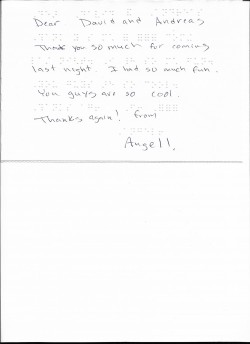 Dear David and Andreas
Thank you so much for coming
last night. I had so much fun.
You guys are so cool.
Thanks again! from
Angell,